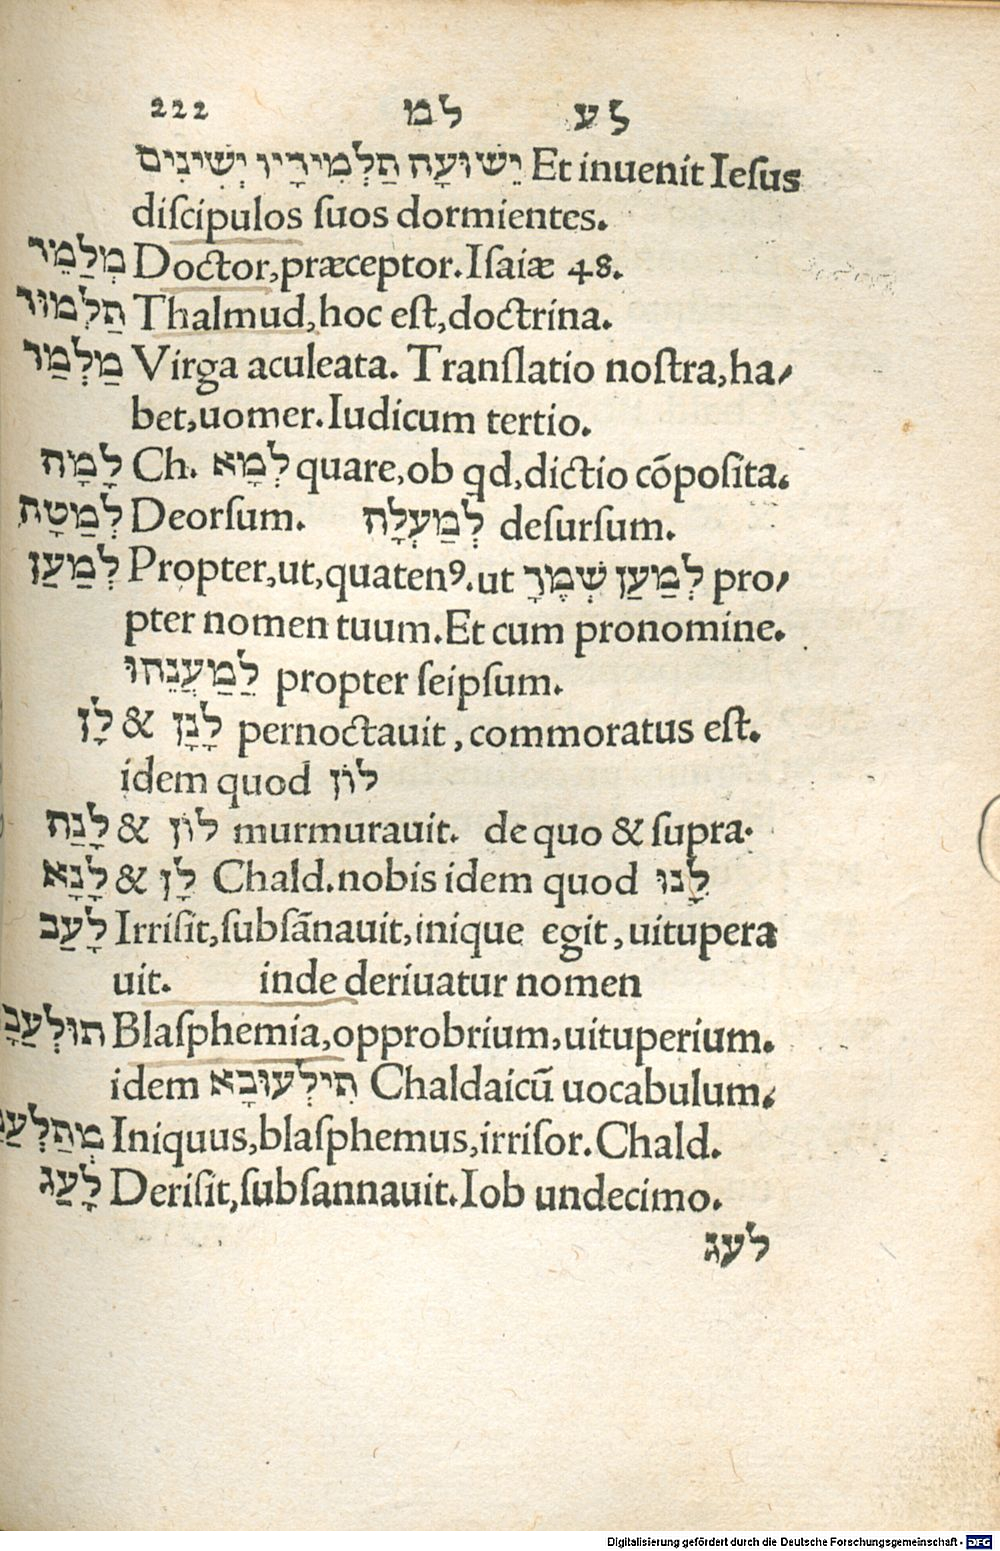 222 למ לע
יֵשׁוּעָה תַלְמִידָיו יְשִׁינִים Et inuenit Iesus
discipulos suos dormientes.
מְלַמֵּד Doctor, præceptor. Isaiæ 48.
תַלְמוּד Thalmud, hoc est, doctrina.
מַלְמַד Virga aculeata. Translatio nostra, ha/
bet, uomer. Iudicum tertio.
לָמָה Ch. לְמָא quare, ob qd, dictio cõposita.
לְמַטָה Deorsum. לְמַעְלָה desursum.
לְמַעַן Propter, ut, quatenꝰ. ut לְמַעַן שְׁמֶךָ pro/
pter nomen tuum. Et cum pronomine.
לַמַעֲנֵהוּ propter seipsum.
לָן & לָנָן pernoctauit, commoratus est.
idem quod לוֹן
לָנַח & לוֹן murmurauit. de quo & supra.
לָנָא & לָן Chald. nobis idem quod לָנוּ
לָעַב Irrisit, subsãnauit, inique egit, uitupera
uit. inde deriuatur nomen
Blasphemia, opprobrium, uituperium.
idem תִילְעוּבָא Chaldaicũ uocabulum.
Iniquus, blasphemus, irrisor. Chald.
לָעַג Derisit, subsannauit. Iob undecimo.
לעג
Digitalisierung gefördert durch die Deutsche Forschungsgemeinschaft - DFG